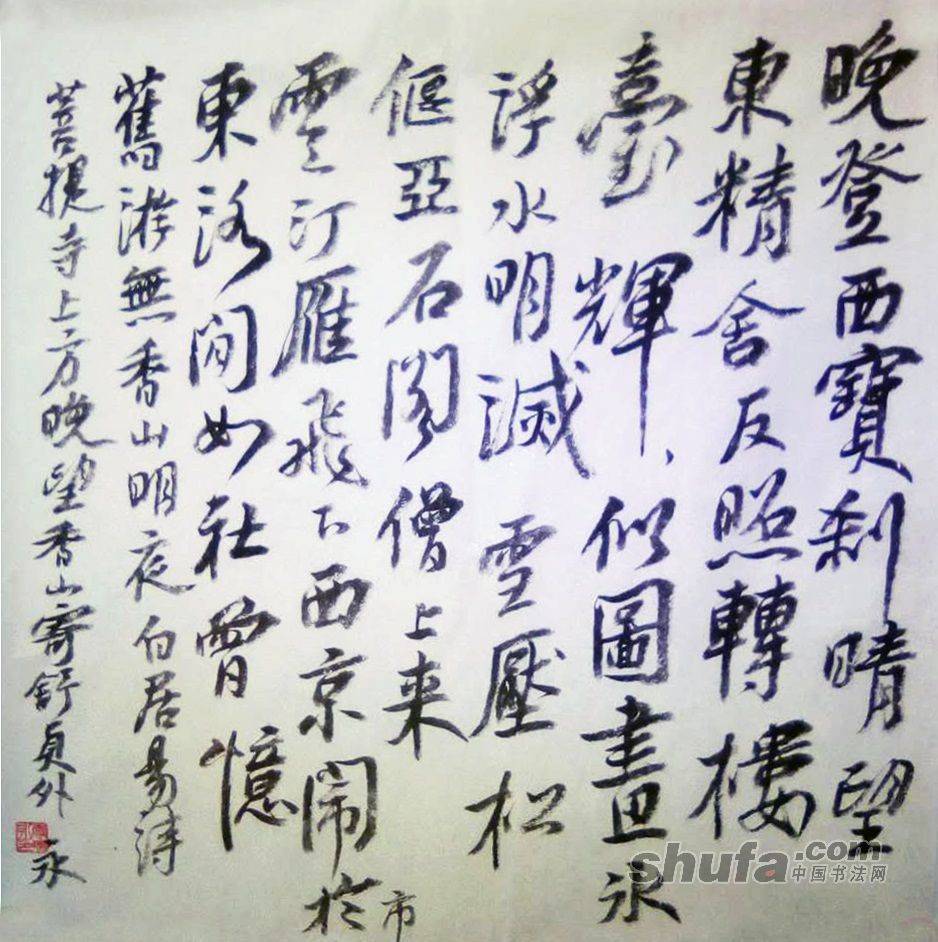 晚登西寶刹晴望
東精舍反照轉樓
臺輝輝似圖畫氷
浮水明滅雪壓松
偃亞石閣僧上来
雲汀雁飛下西京鬧於市
東洛閒如社曾憶
舊游無香山明夜白居易詩
菩提寺上方晚望香山寄舒員外 永
shufa.com
中国书法网